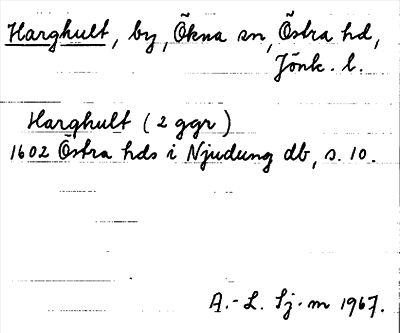 Harghult, by, Ökna sn, Östra hd,
Jönk. l.
Harghult (2 ggr)
1602 Östra hds i Njudung db, s. 10.
A.-L. Sj-m 1967.